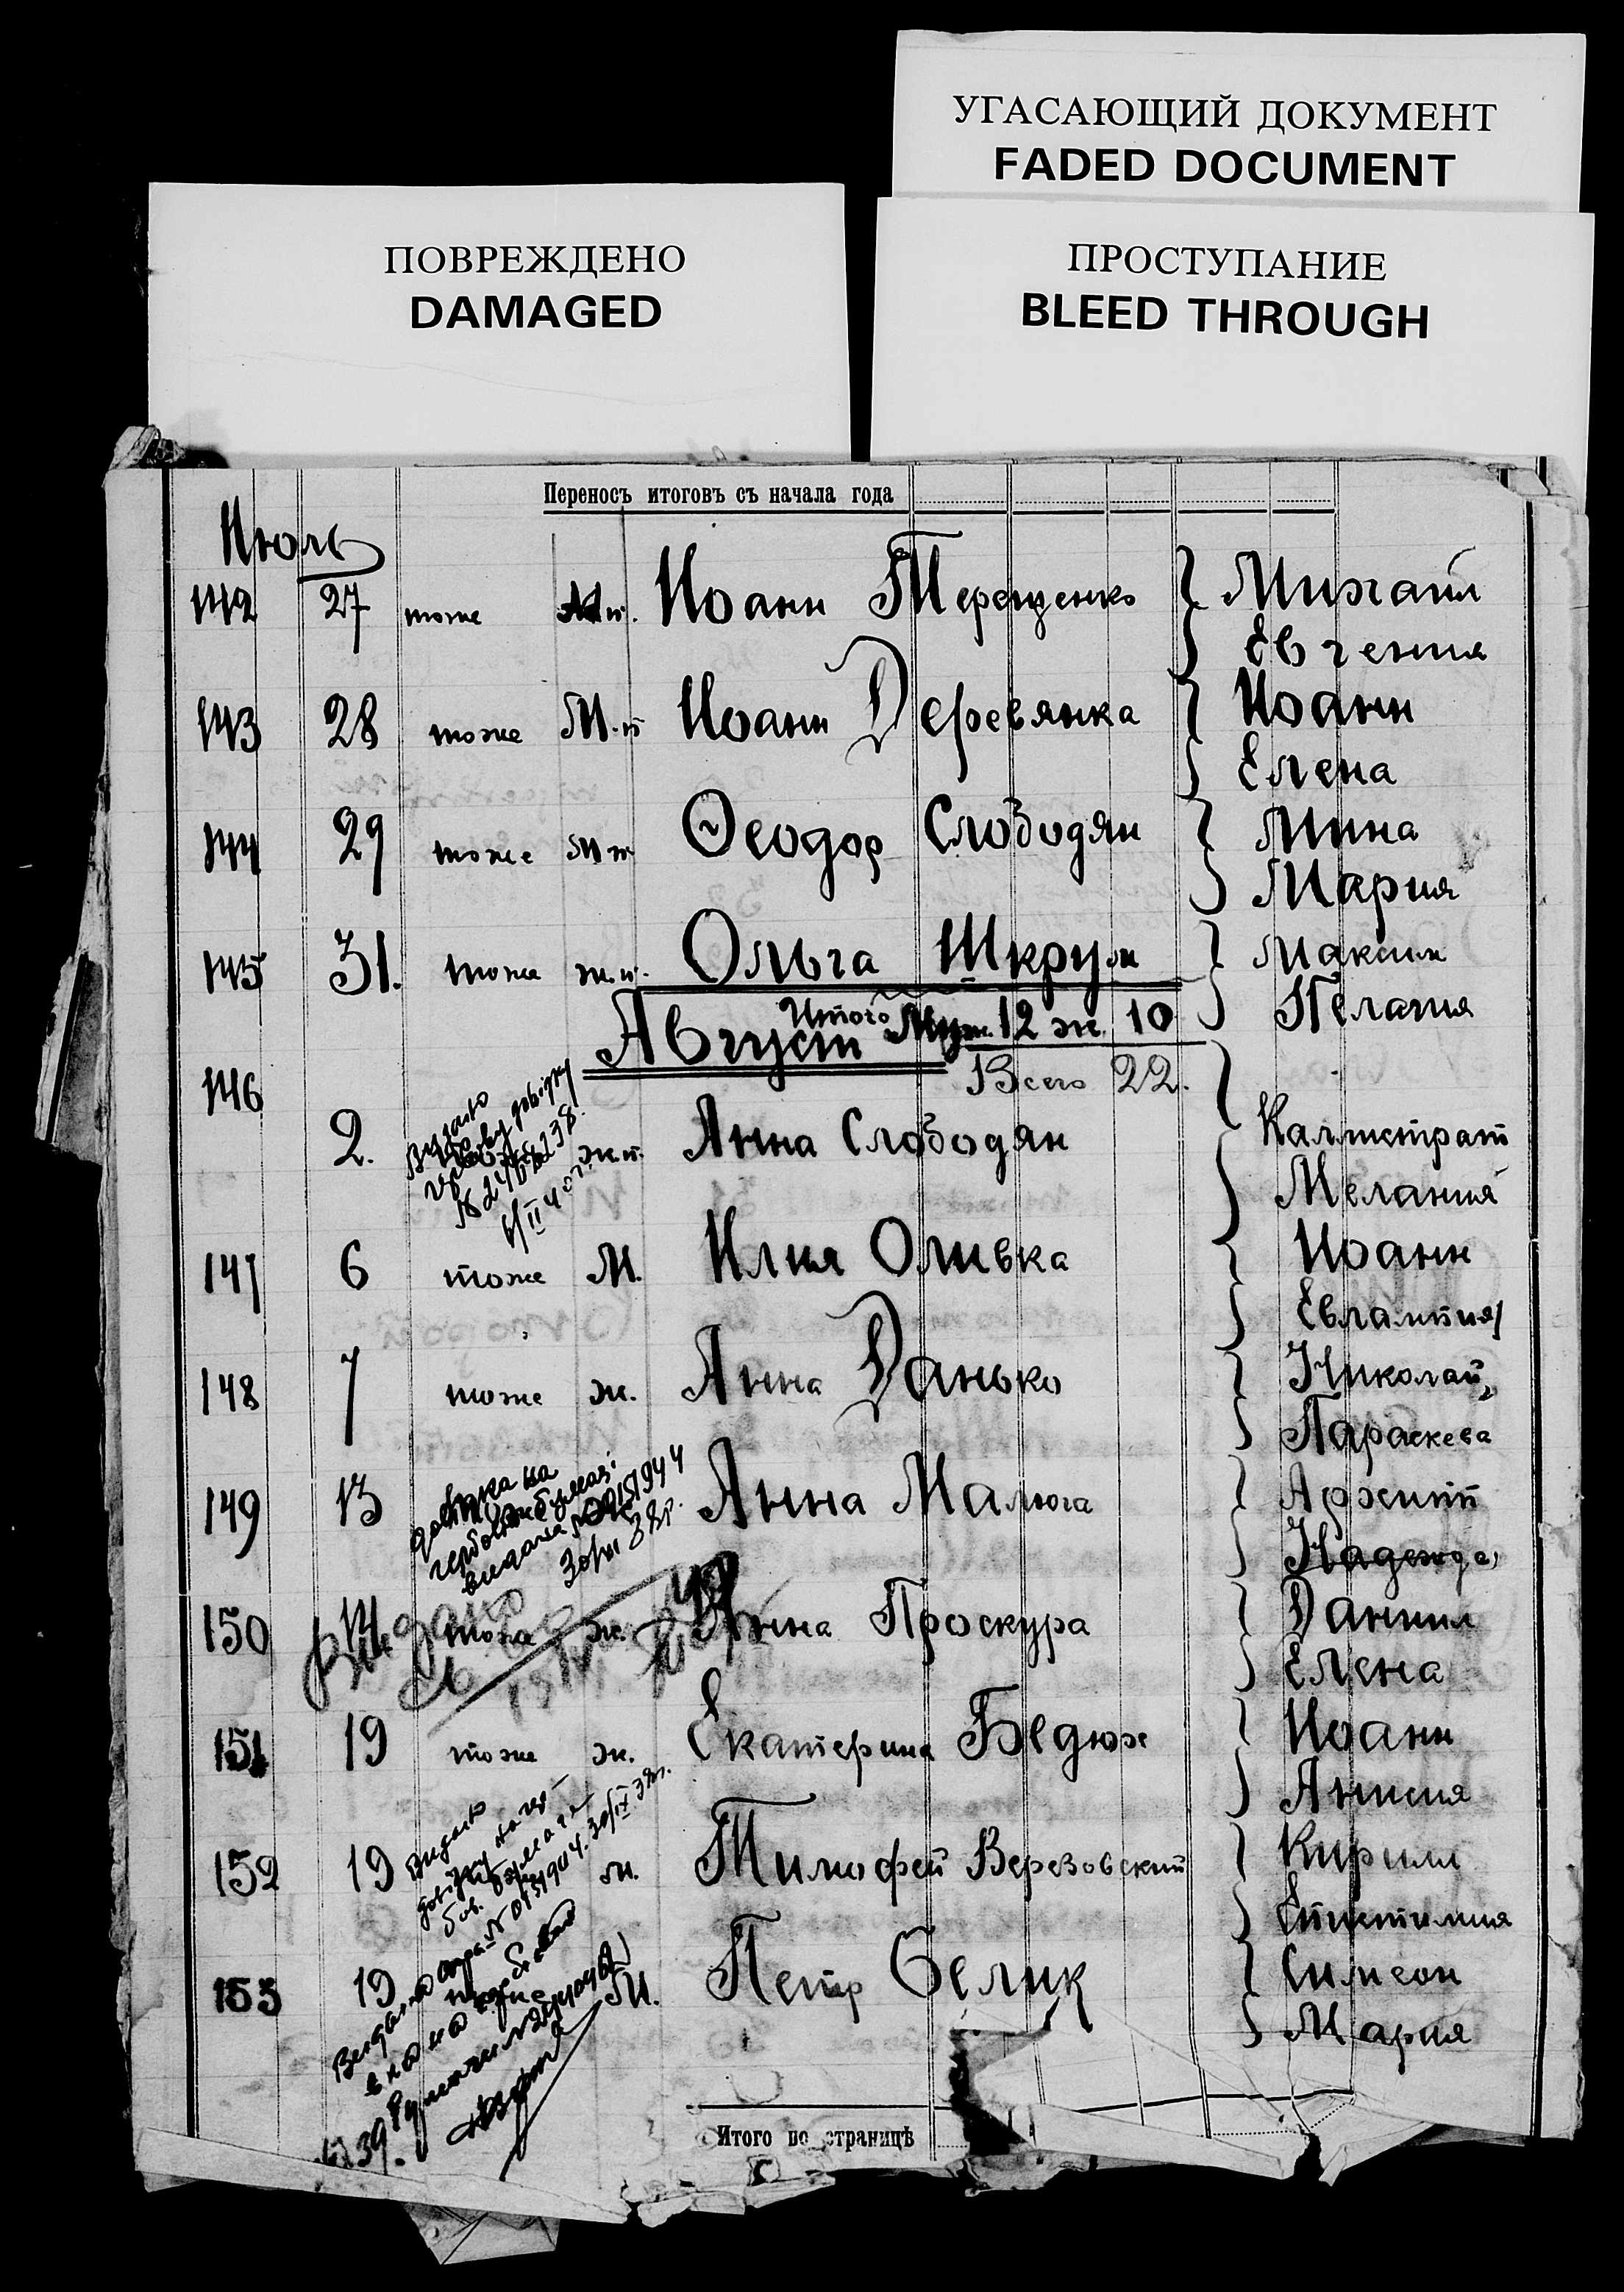 УГАСАЮЩИЙ ДОКУМЕНТ
FADED DOCUMENT
ПОВРЕЖДЕНО
DAMAGED
ПРОСТУПАНИЕ
BLEED THROUGH
Переносъ итоговъ съ начала года
Июль
142 27 тоже п. Иоанн Терещенко Михаил
Евгения
143 28 тоже М. п Иоанн Деревянка Иоанн
Елена
144 29 тоже М п Ѳеодор Слободян Мина
Мария
145 31. тоже ж. п. Ольга Шкрум Максим
Пелагия
Итого Муж. 12 ж. 10
Август
Всего 22.
146
2. Видано довідку ж п. Анна Слободян Каллистрат
Мелания
147 6 тоже М. Илия Оливка Иоанн
Евлампия
148 7 тоже ж. Анна Данько Николай
Параскева
149 13 довідка на видана Анна Малюга Архипп
Надежда
150 Видано тоже ж. Анна Проскура Даниил
Елена
151 19 тоже ж. Екатерина Бедюх Иоанн
Анисия
152 19 Видано довідку м. Тимофей Березовский Кирилл
Епистимия
153 19 Видано М. Петр Белик Симеон
Мария
39.
Итого по страницѣ